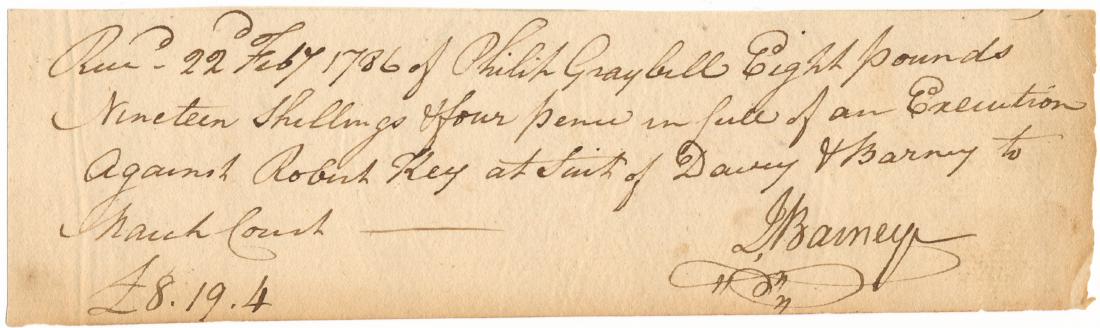 Recd. 22d Feby 1786 of Philip Graybell Eight pounds
Nineteen Shillings & four pence in full of an Execution
Against Robert Key at Suit of Davey & Barney to
March Court
J Barney
£8.19.4